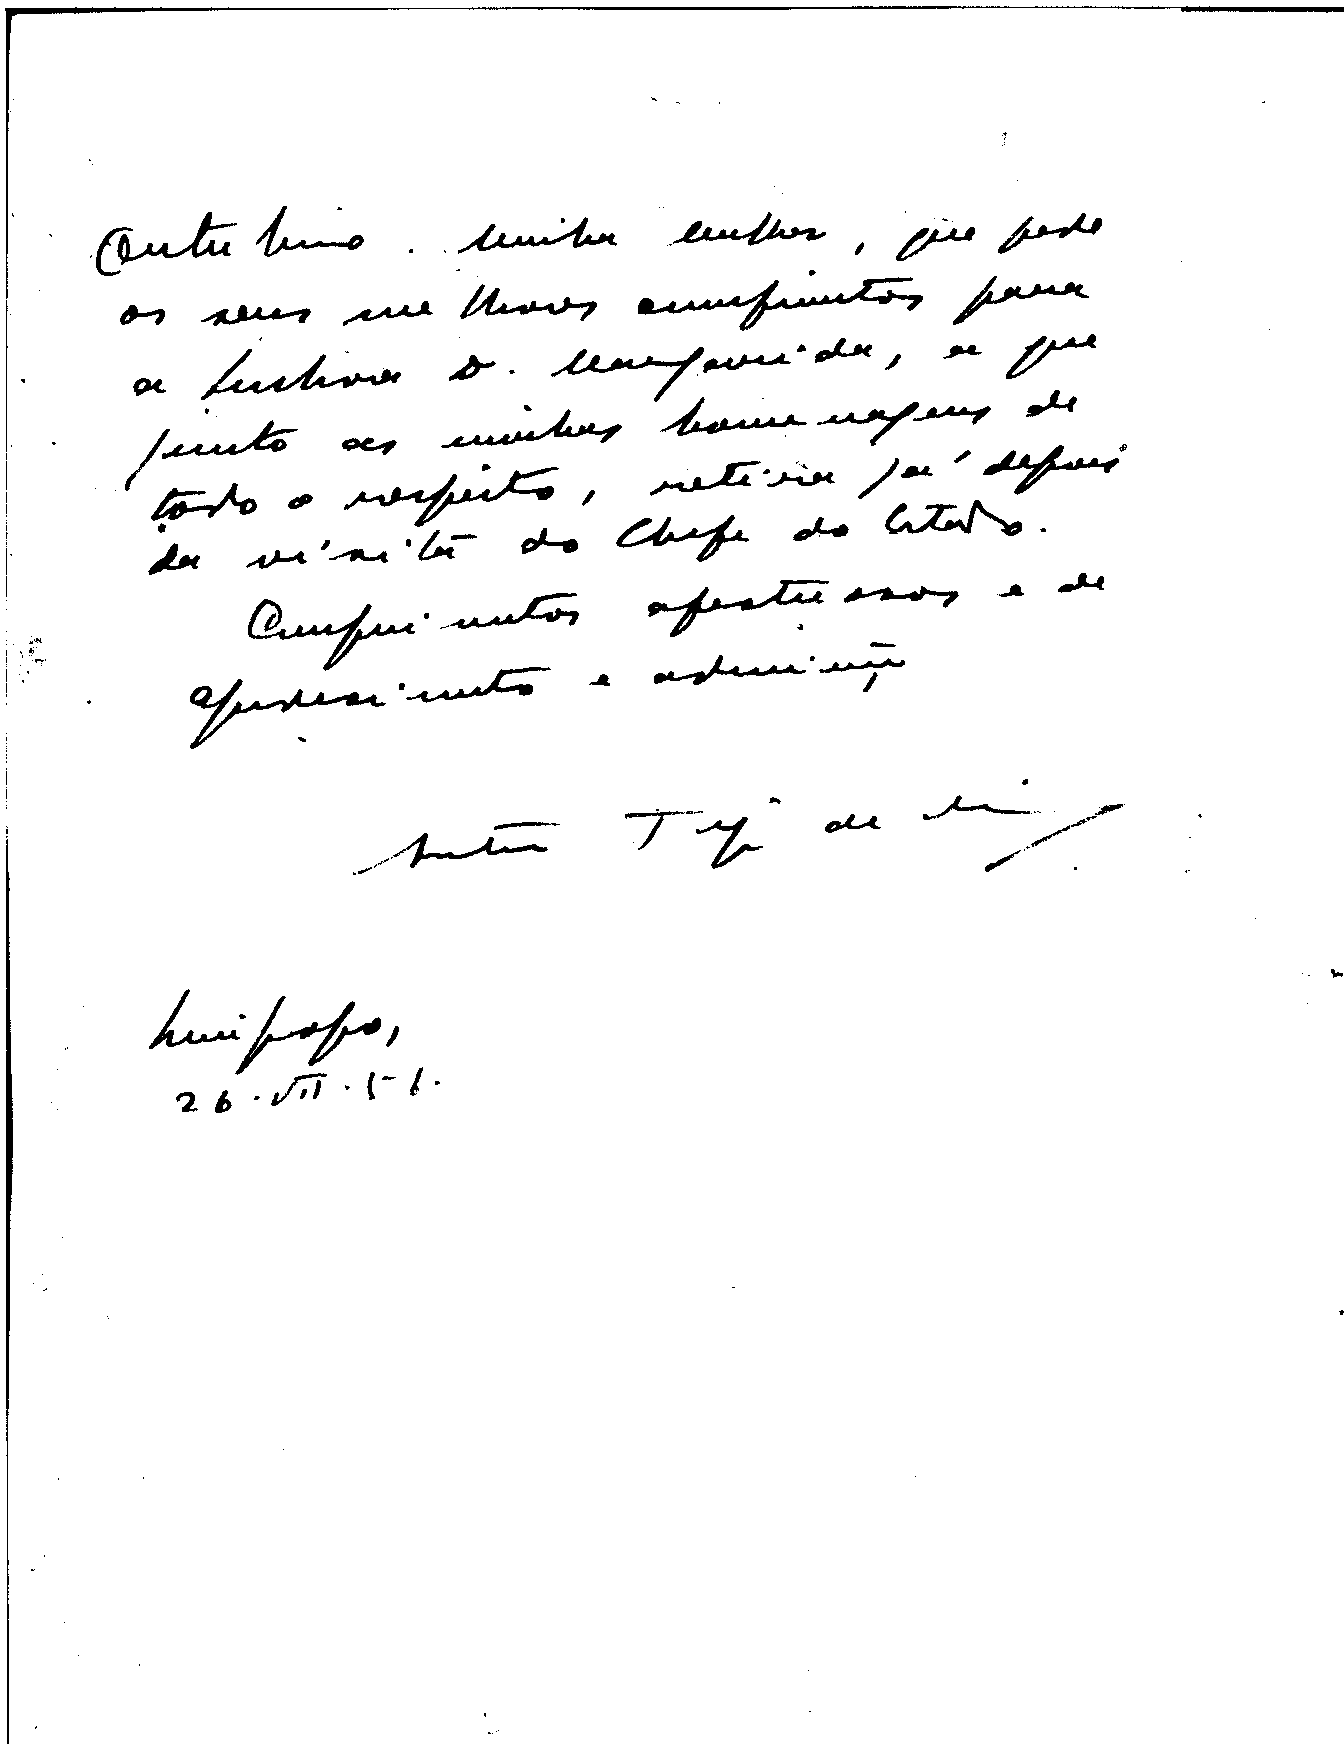 minha mulher, que pede
os seus melhores cumprimentos para
a Senhora D. Margarida, a que
junto as minhas homenagens de
todo o respeito, retira já depois
da visita do Chefe do Estado.
Cumprimentos afectuosos e de
agradecimento e admiração
de
26.VII.56.